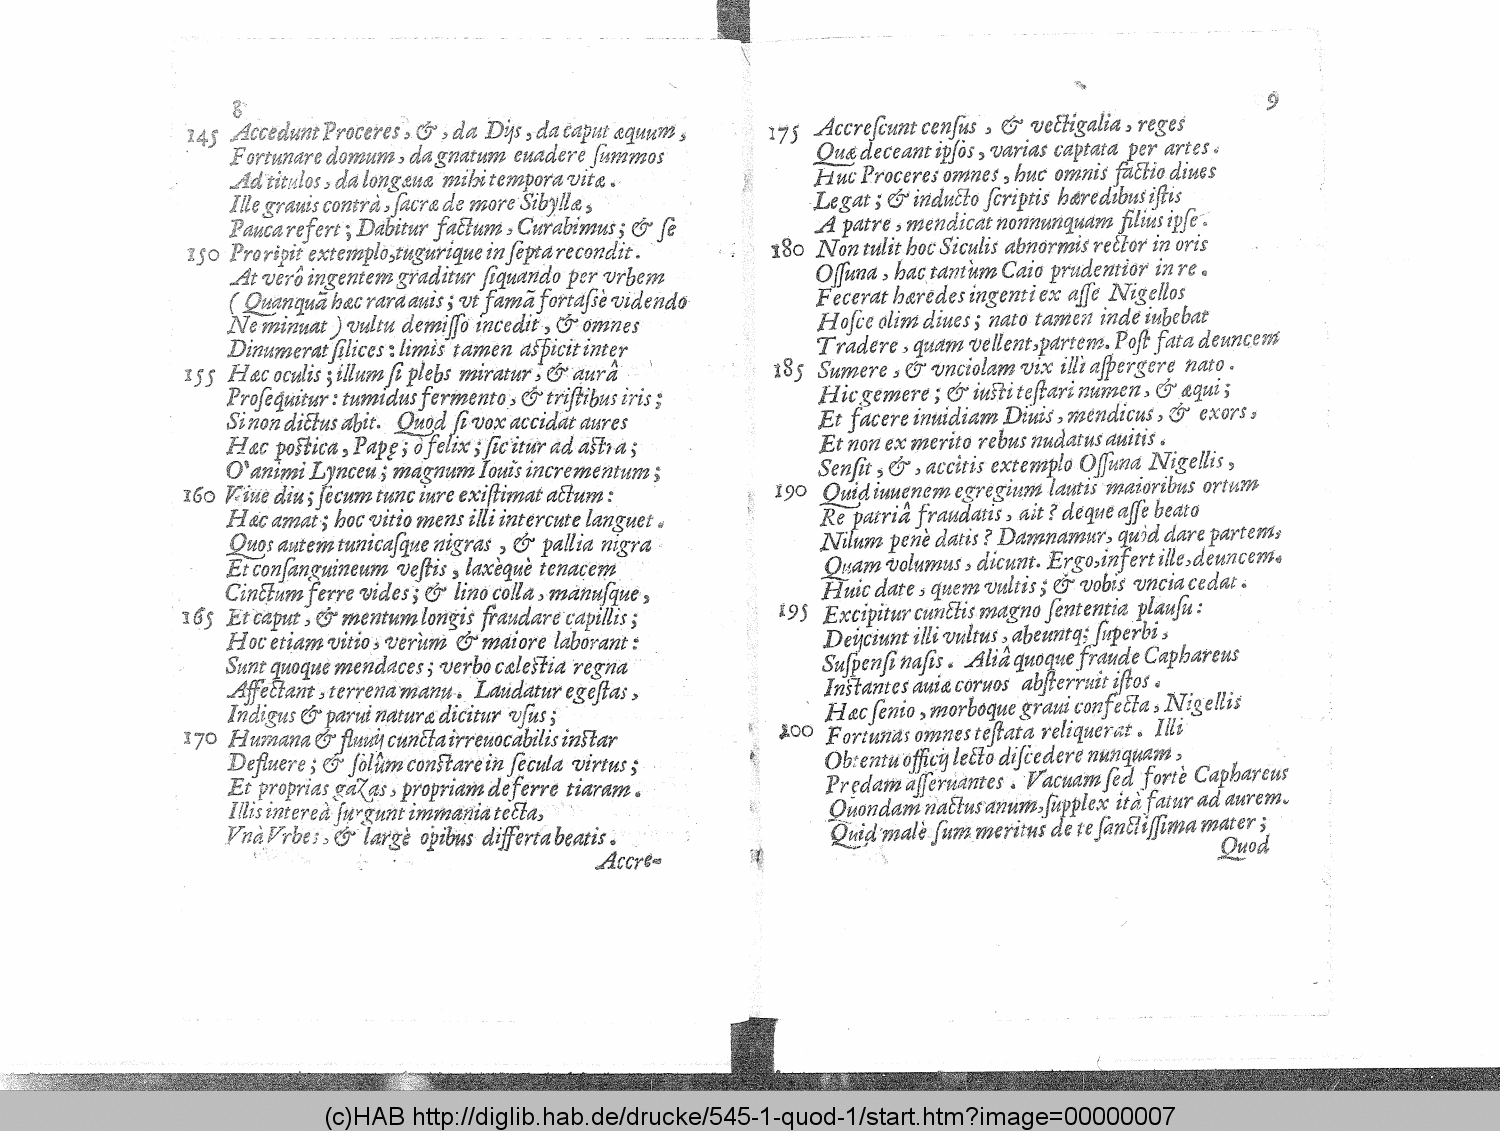 8
145 Accedunt Proceres, &, da Dijs, da caput æquum,
Fortunare domum, da gnatum euadere ſummos
Ad titulos, da longæuæ mihi tempora vitæ.
Ille grauis contrà, ſacræ de more Sibyllæ,
Pauca refert; Dabitur factum, Curabimus; & ſe
150 Proripit extemplo, tugurique in ſepta recondit.
At verô ingentem graditur ſiquando per vrbem
(Quanquã hæc rara auis; vt famã fortaſsè videndo
Ne minuat) vultu demiſſo incedit, & omnes
Dinumerat ſilices: limis tamen aſpicit inter
155 Hæc oculis; illum ſi plebs miratur, & aurâ
Proſequitur: tumidus fermento, & triſtibus iris;
Si non dictus abit. Quod ſi vox accidat aures
Hæc poſtica, Papę; ô felix; ſic itur ad aſtra;
O' animi Lynceu; magnum Iouis incrementum;
160 Viue diu; ſecum tunc iure exiſtimat actum:
Hæc amat; hoc vitio mens illi intercute languet.
Quos autem tunicaſque nigras, & pallia nigra
Et conſanguineum veſtis, laxèquè tenacem
Cinctum ferre vides; & lino colla, manuſque,
165 Et caput, & mentum longis fraudare capillis;
Hoc etiam vitio, verùm & maiore laborant:
Sunt quoque mendaces; verbo cæleſtia regna
Affectant, terrena manu. Laudatur egeſtas,
Indigus & parui naturæ dicitur vſus;
170 Humana & fluuij cuncta irreuocabilis inſtar
Defluere; & ſolûm conſtare in ſecula virtus;
Et proprias gazas, propriam deferre tiaram.
Illis intereà ſurgunt immania tecta,
Vnà Vrbes, & largè opibus differta beatis.
Accre-
9
175 Accreſcunt cenſus, & vectigalia, reges
Quæ deceant ipſos, varias captata per artes.
Huc Proceres omnes, huc omnis factio diues
Legat; & inducto ſcriptis hæredibus iſtis
A patre, mendicat nonnunquam filius ipſe.
180 Non tulit hoc Siculis abnormis rector in oris
Oſſuna, hac tantùm Caio prudentior in re.
Fecerat hæredes ingenti ex aſſe Nigellos
Hoſce olim diues; nato tamen inde iubebat
Tradere, quam vellent, partem. Poſt fata deuncem
185 Sumere, & vnciolam vix illi aſpergere nato.
Hic gemere; & iuſti teſtari numen, & æqui;
Et facere inuidiam Diuis, mendicus, & exors,
Et non ex merito rebus nudatus auitis.
Senſit, &, accitis extemplo Oſſuna Nigellis,
190 Quid iuuenem egregium lautis maioribus ortum
Re patriâ fraudatis, ait? deque aſſe beato
Nilum penè datis? Damnamur, quòd dare partem,
Quam volumus, dicunt. Ergo, infert ille, deuncem
Huic date, quem vultis; & vobis vncia cedat.
195 Excipitur cunctis magno ſententia plauſu:
Deijciunt illi vultus, abeuntq; ſuperbi,
Suſpenſi naſis. Aliâ quoque fraude Caphareus
Inſtantes auiæ coruos abſterruit iſtos.
Hæc ſenio, morboque graui confecta, Nigellis
200 Fortunas omnes teſtata reliquerat. Illi
Obtentu officij lecto diſcedere nunquam,
Prędam aſſeruantes. Vacuam ſed fortè Caphareus
Quondam nactus anum, ſupplex ità fatur ad aurem.
Quid malè ſum meritus de te ſanctiſſima mater;
Quod
(c)HAB http://diglib.hab.de/drucke/545-1-quod-1/start.htm?image=00000007